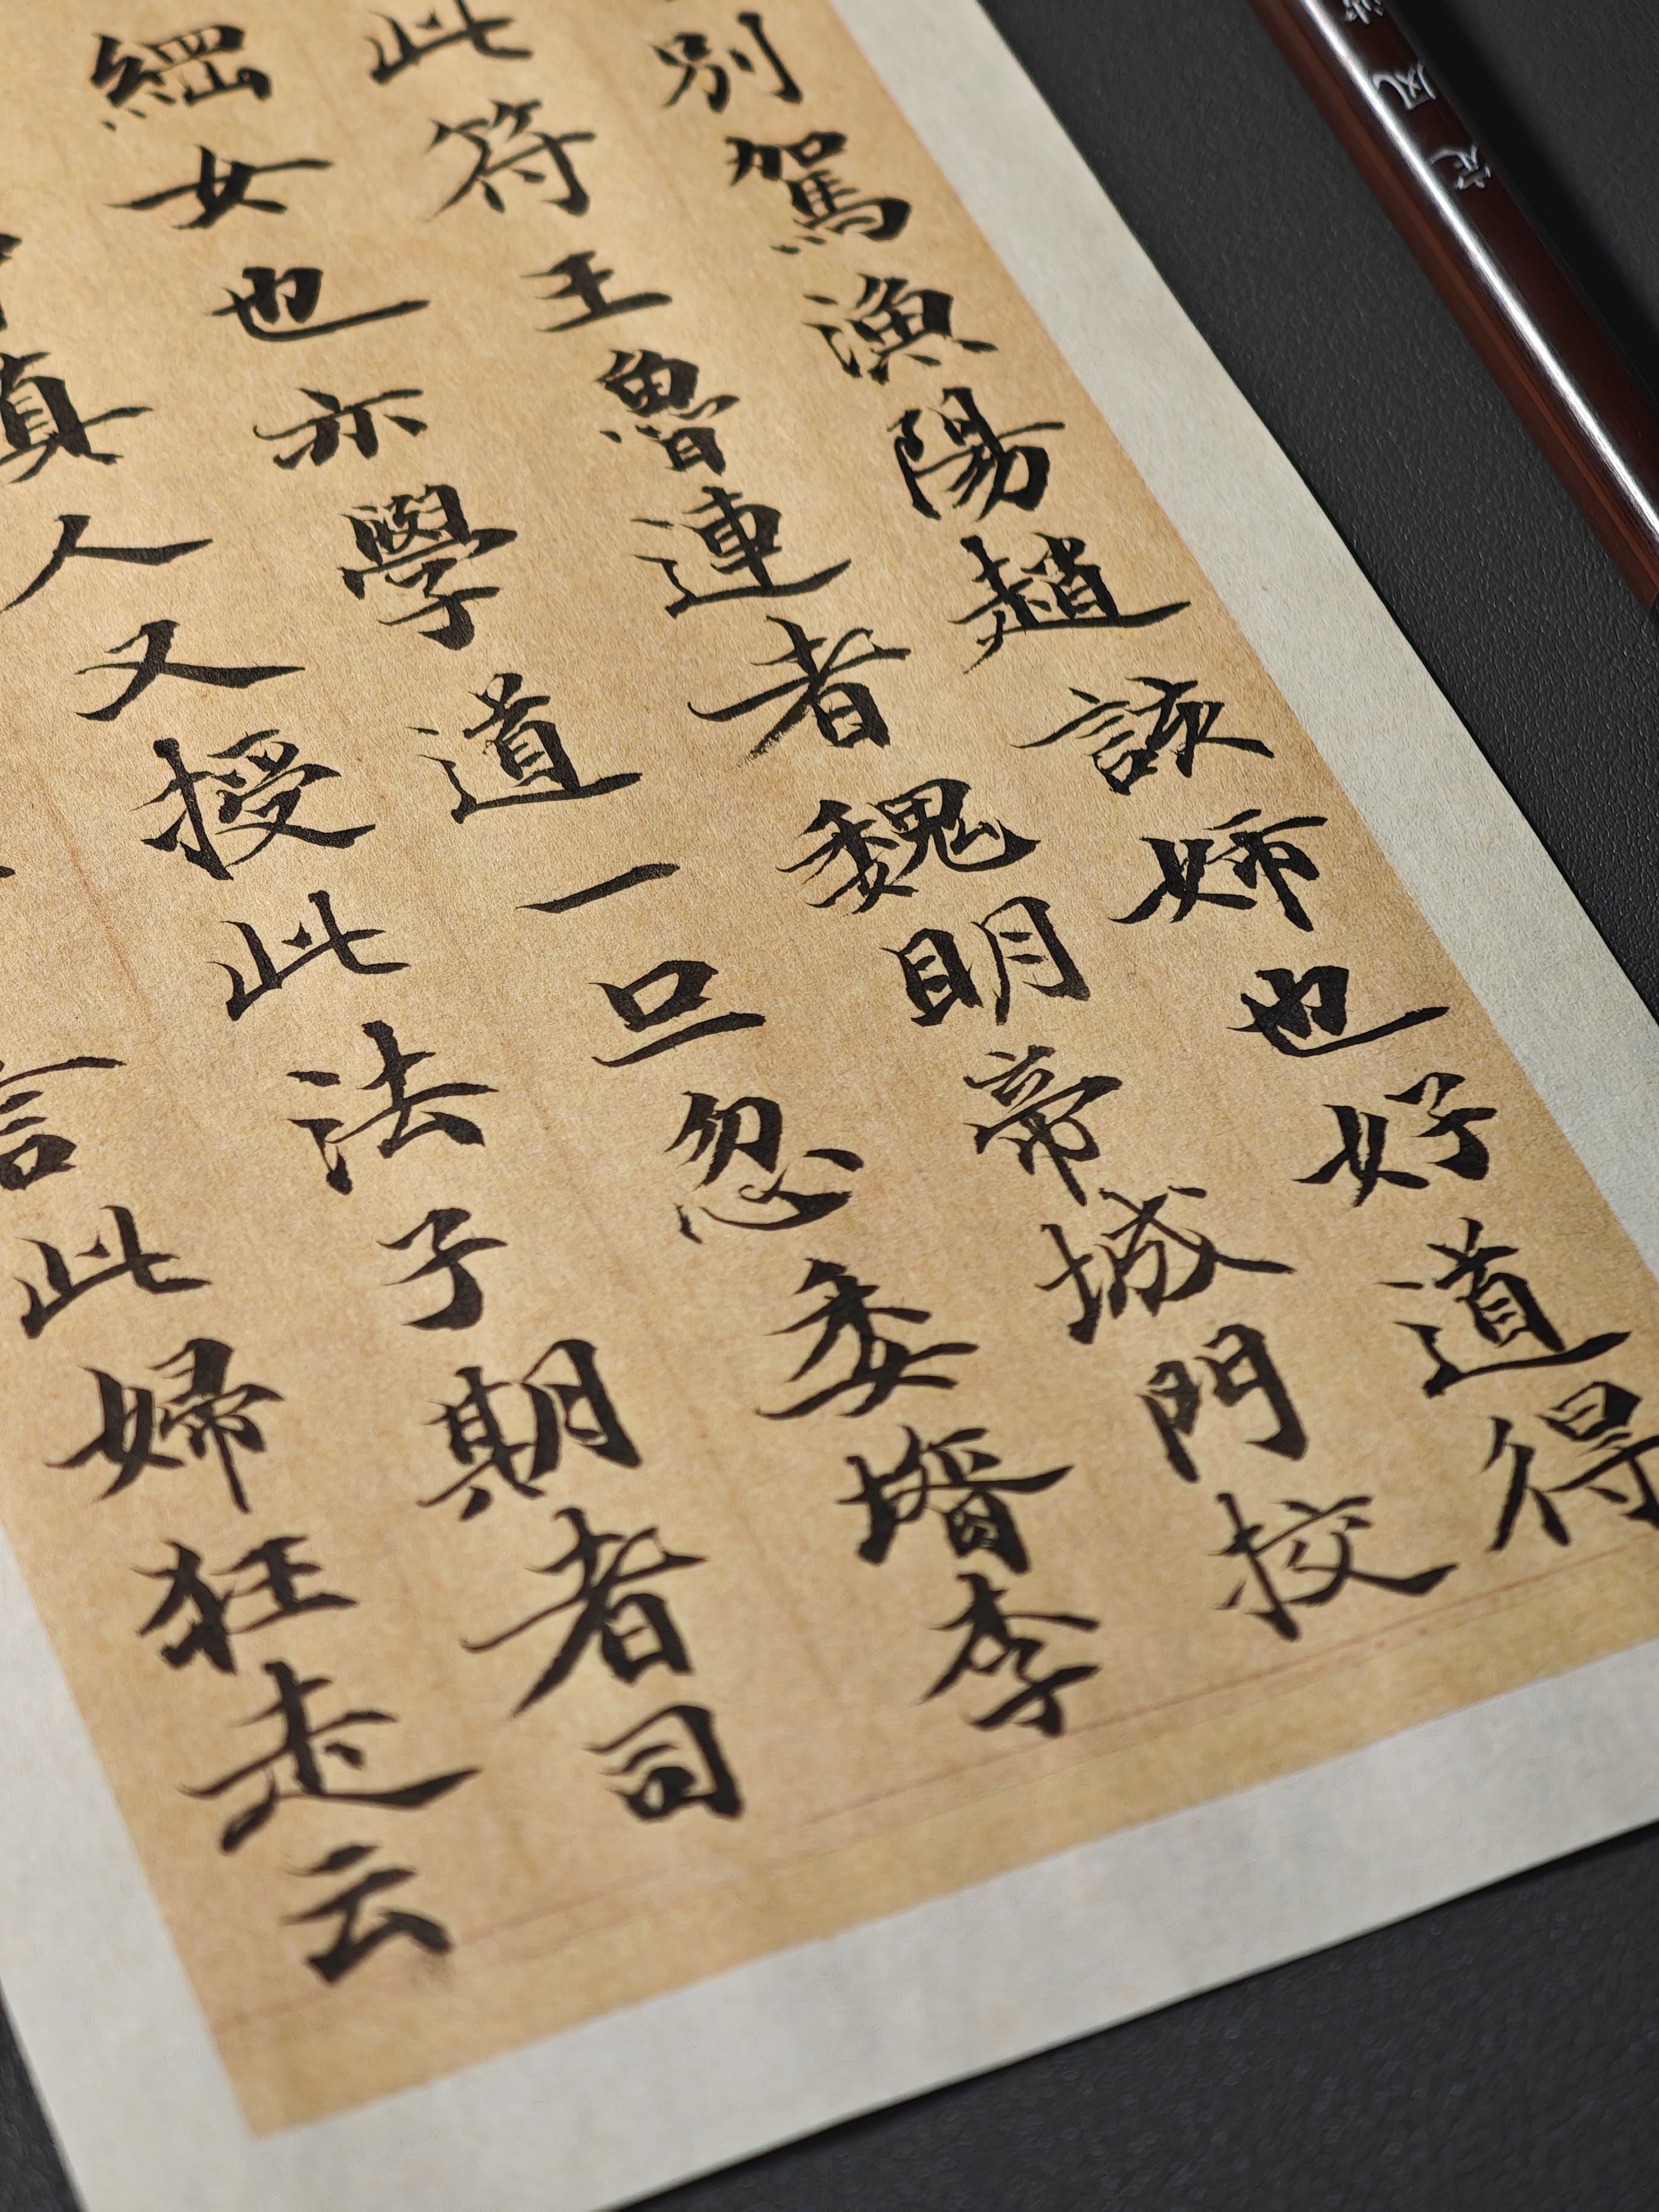 別駕漁陽趙該姉也好道得
此符王魯連者魏明帝城門挍
綱女也亦學道一旦忽委壻李
真人又授此法子期者司
言此婦狂走云
风
定